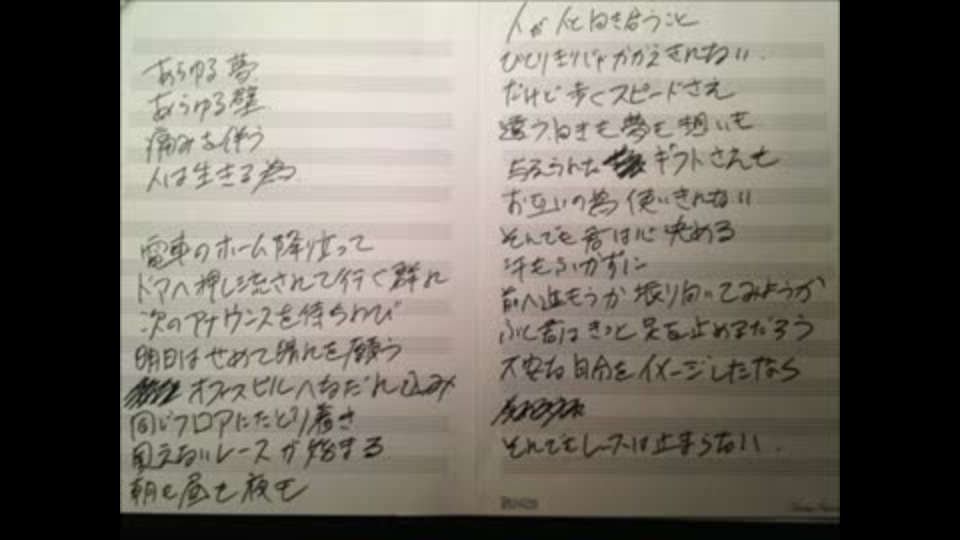 あらゆる夢
あらゆる壁
痛みを伴う
人は生きる為
電車のホーム降り立って
ドアへ押し流されて行く群れ
次のアナウンスを待ちわび
明日はせめて晴れを願う
オフィスビルへなだれ込み
同じフロアにたどり着き
見えないレースが始まる
朝も昼も夜も
人が人と向き合うこと
ひとりきりじゃかかえきれない
だけど歩くスピードさえ
違う向きも夢も想いも
与えられた ギフトさえも
お互いの為使いきれない
それでも君は心決める
汗もふかずに
前へ進もうか振り向いてみようか
ふと君はきっと足を止めるだろう
不安な自分をイメージしたなら
それでもレースは止まらない